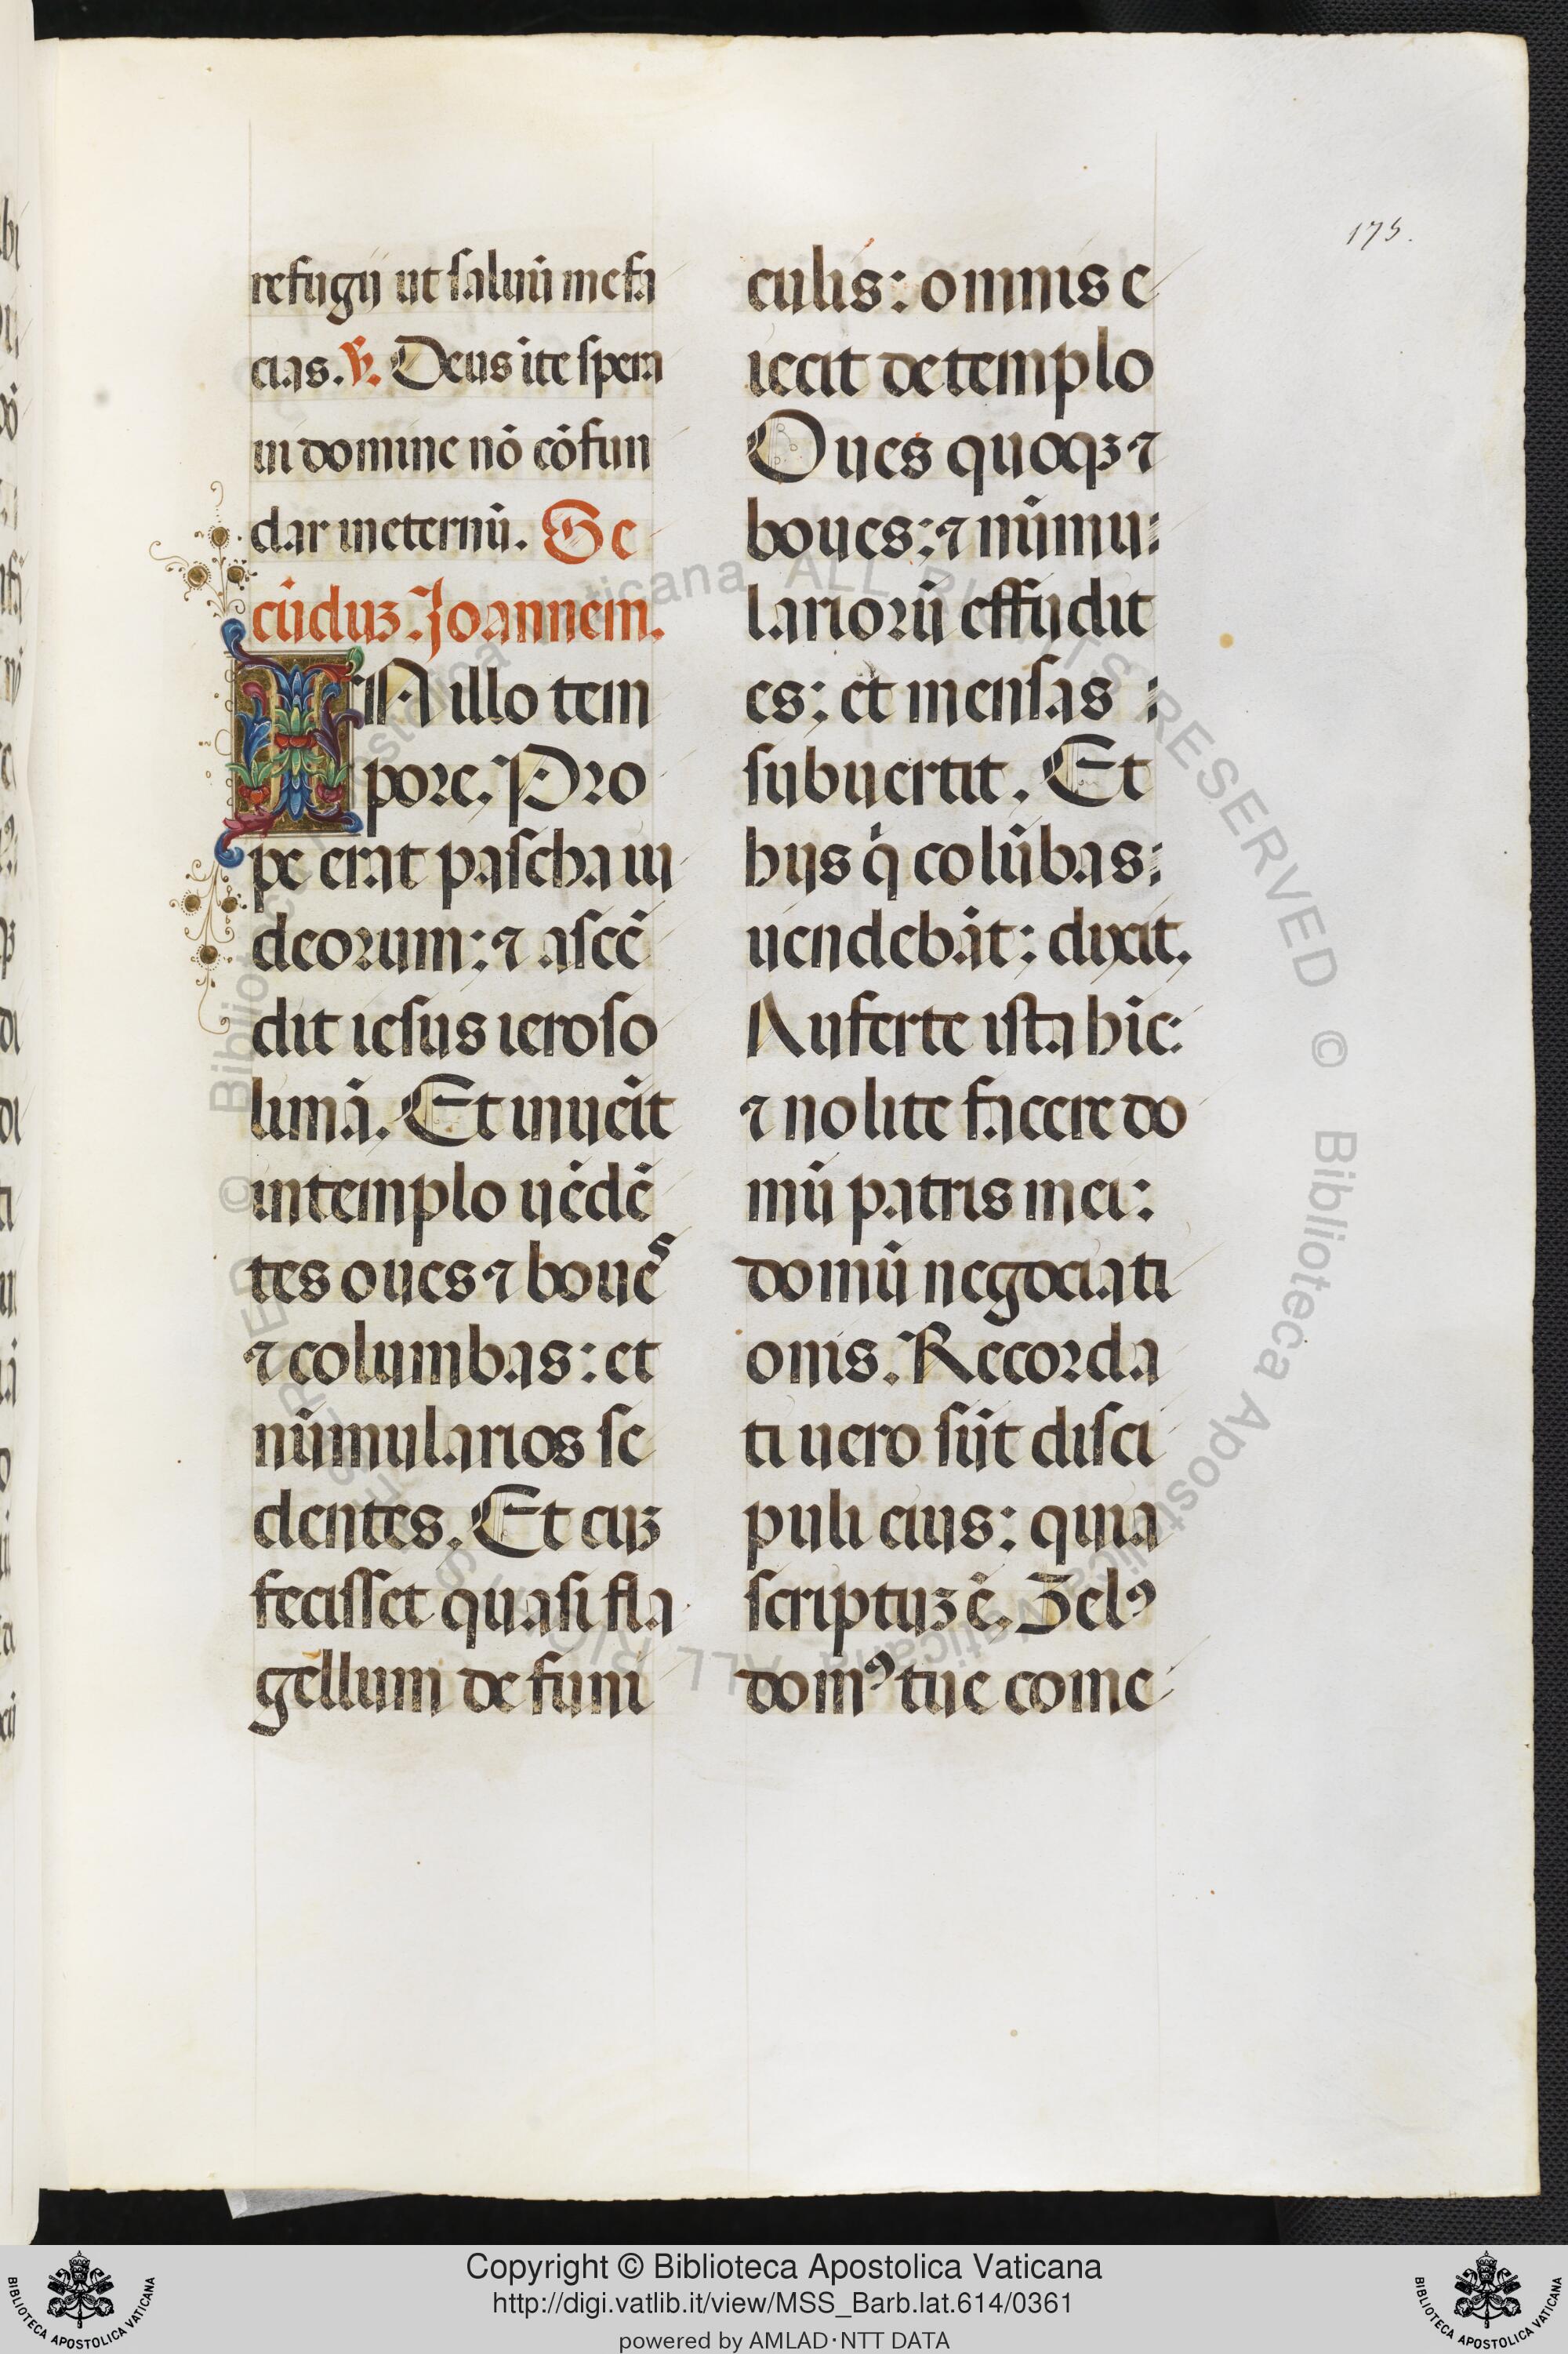 175.
refugij ut saluū me fa
cias. ℣. Deus i te spera
ui domine nō cōfun
dar in eternū. Se
cūduꝫ. Joannem.
IN illo tem
pore. Pro
pe erat pascha iu
deorum: ⁊ ascē
dit iesus ieroso
limā. Et inueīt
in templo uēdē
tes oues ⁊ boues
⁊ columbas: et
nūmularios se
dentes. Et cuꝫ
fecisset quasi fla
gellum de funi
culis: omnis e
iecit de templo
Oues quoqꝫ ⁊
boues: ⁊ nūmu:
lariorū effudit
es: et mensas :
subuertit. Et
hijs q̇ colūbas:
uendebāt: dixit.
Auferte ista hīc:
⁊ nolite facere do
mū patris mei:
domū negociati
onis. Recorda
ti uero sūt disci
puli eius: quia
scriptuꝫ ē. Zelꝰ
domꝰ tue come
Copyright © Biblioteca Apostolica Vaticana
http://digi.vatlib.it/view/MSS_Barb.lat.614/0361
powered by AMLAD·NTT DATA
BIBLIOTECA APOSTOLICA VATICANA
BIBLIOTECA APOSTOLICA VATICANA